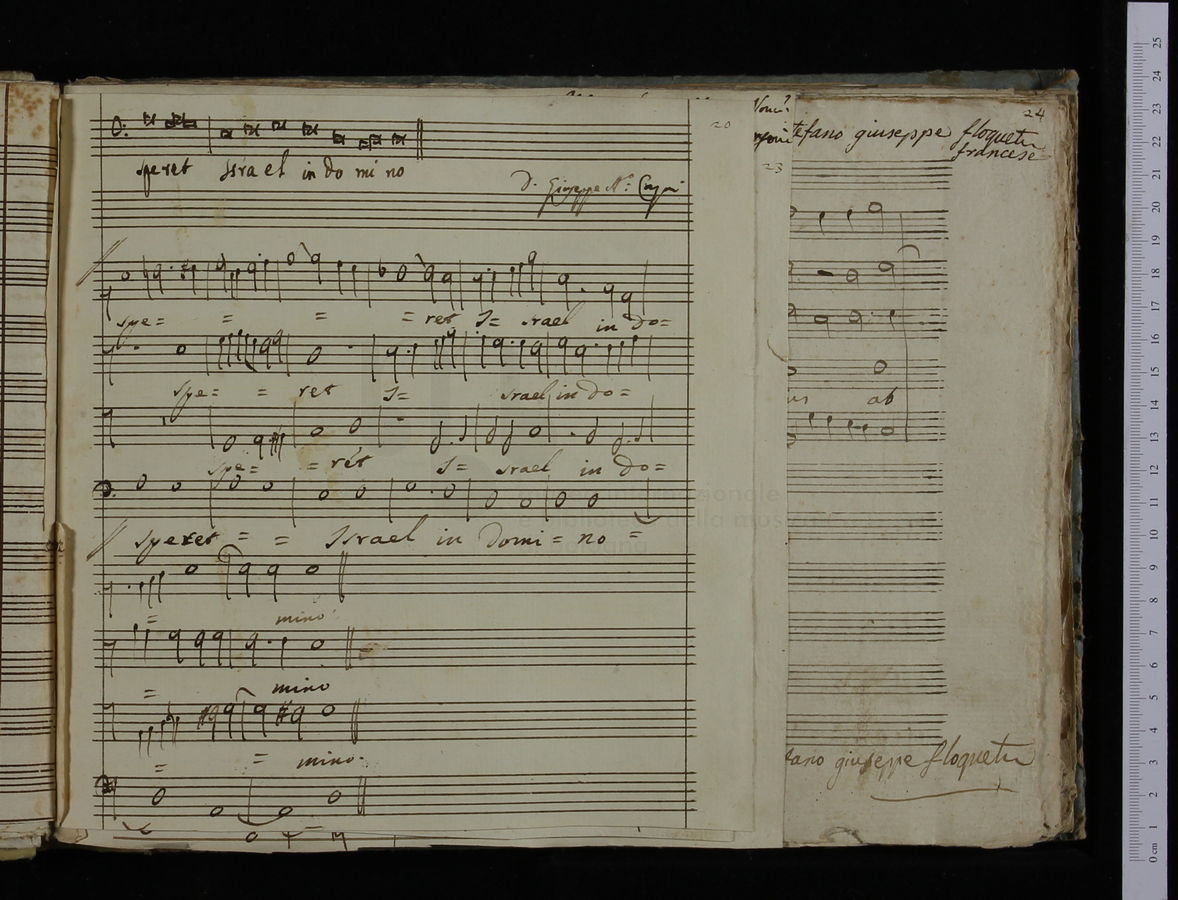 speret Israel in do mi no
20
23
24
D. Giuseppe
spe= = = = ret I= srael in do=
spe= = ret I= srael in do=
spe= = rét I= srael in do=
speret = = Israel in Domi = no =
= mino
= mino
= = mino.
tefano giuseppe floquetu
francese
ab
tano giuseppe floquetu
25
24
23
22
21
20
19
18
17
16
15
14
13
12
11
10
9
8
7
6
5
4
3
2
1
0 cm